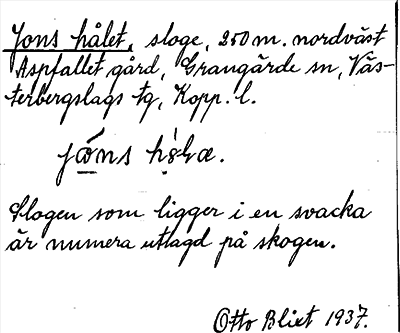 Jons hålet, sloge, 250 m. nordväst
Aspfallet gård, Grangärde sn, Väs-
terbergslags tg, Kopp. l.
Slogen som ligger i en svacka
är numera utlagd på skogen.
Otto Blixt 1937.